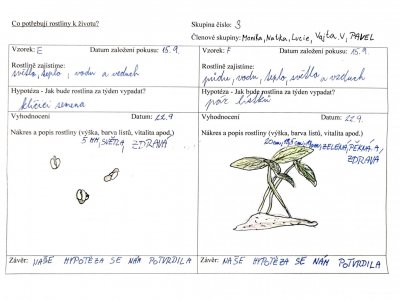 Co potřebují rostliny k životu?
Skupina číslo: 3
Členové skupiny: Monika, Natka, Lucie, Vojta V, PAVEL
Vzorek: E Datum založení pokusu: 15.9.
Rostlině zajistíme:
světlo, teplo, vodu a vzduch
Hypotéza - Jak bude rostlina za týden vypadat?
klíčící semena
Vyhodnocení Datum: 22.9.
Nákres a popis rostliny (výška, barva listů, vitalita apod.)
5 MM, SVĚTLÁ, ZDRAVÁ
Závěr: NAŠE HYPOTÉZA SE NÁM POTVRDILA
Vzorek: F Datum založení pokusu: 15.9.
Rostlině zajistíme:
půdu, vodu, teplo, světlo a vzduch
Hypotéza - Jak bude rostlina za týden vypadat?
pár lístků
Vyhodnocení Datum: 22.9.
Nákres a popis rostliny (výška, barva listů, vitalita apod.)
20cm, ZELENÁ, PĚKNÁ A
ZDRAVÁ
Závěr: NAŠE HYPOTÉZA SE NÁM POTVRDILA